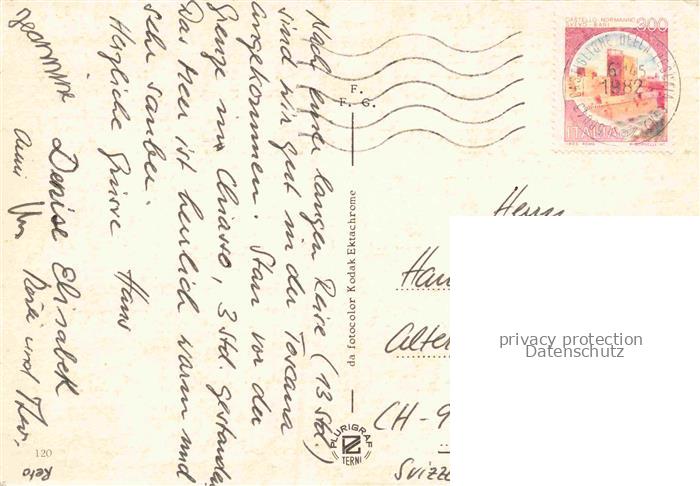 Nach einer langen Reise (13 Std.)
sind wir gut in der Toscana
angekommen. Stau vor der
Grenze in Chiasso, 3 Std. gestanden
Das Meer ist herrlich warm und
sehr sauber.
Herzliche Grüsse Hans
Denise Elisabeth
Reto
Jeannine
120
F.
F. G.
da fotocolor Kodak Ektachrome
PLURIGRAF
TERNI
CASTELLO NORMANNO
SVEVO - BARI
300
ITALIA
CASTIGLIONE DELLA PESCAIA
1982
Herrn
Han
Alte
CH-9
Svizze
privacy protection
Datenschutz